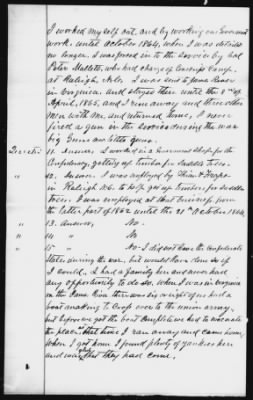 I worked my self out, and by working on Government
work until October 1864, when I was detailed
no longer. I was forced in to the service by Col
Peter Mallett, who had charge of Conscript Camp,
at Raleigh N.C. I was sent to James River
in Virginia and stayed there until the 2nd of
April, 1865, and I run away and three other
men with me and returned home, I never
fired a gun in the service during the war
big Guns nor little guns.
11. Answer. I worked in a Government Shop for the
Confederacy, getting up timber for Saddle trees.
12. Answer. I was employed by Thim & Fraps
in Raleigh N.C. to help get up timber for Saddle
trees. I was employed at that business from
the latter part of 1862 until the 21st October 1864.
" 13. Answer, No.
" 14 " No
" 15 " No - I did not leave the Confederate
States during the war, but would have done so if
I could. I had a family here and never had
any opportunity to do so. When I was in Virginia
on the James River there was six or eight of us had a
boat making to Cross over to the union army,
but before we got the boat complete we had to evacuate
the place. that time I ran away and came home,
when I got home I found plenty of yankees here
and was glad they had come.